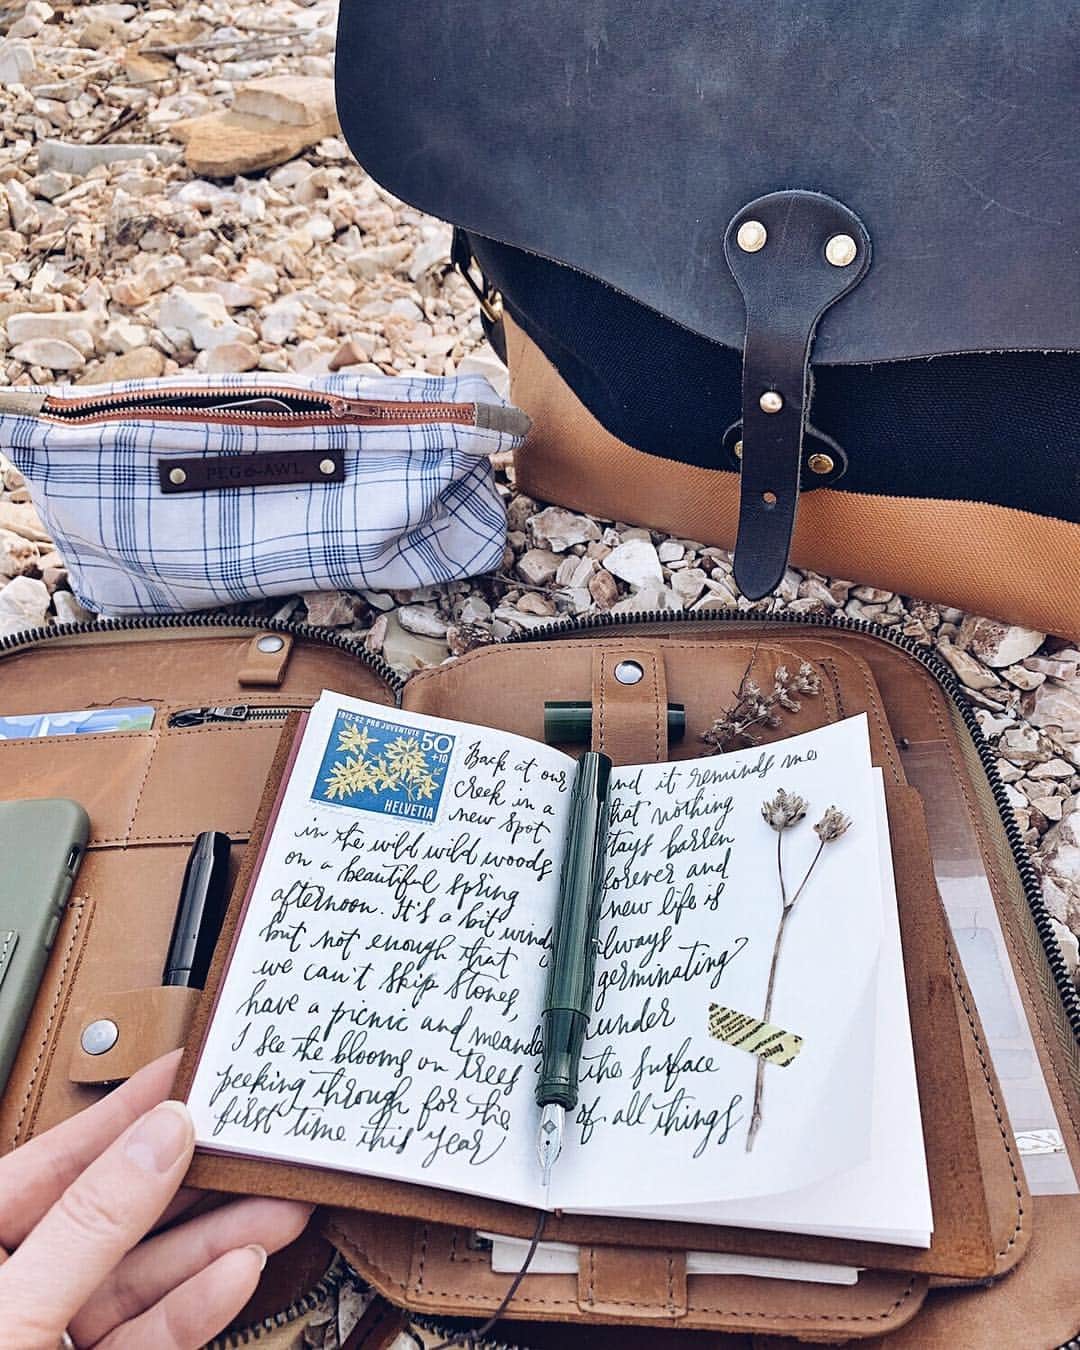 PEG & AWL
1912-62 PRO JUVENTUTE
50
+10
HELVETIA
Back at our
creek in a
new spot
in the wild wild woods
on a beautiful spring
afternoon. It's a bit windy
but not enough that
we can't skip stones,
have a picnic and meander
I see the blooms on trees
peeking through for the
first time this year
and it reminds me
that nothing
stays barren
forever and
new life is
always
germinating
under
the surface
of all things